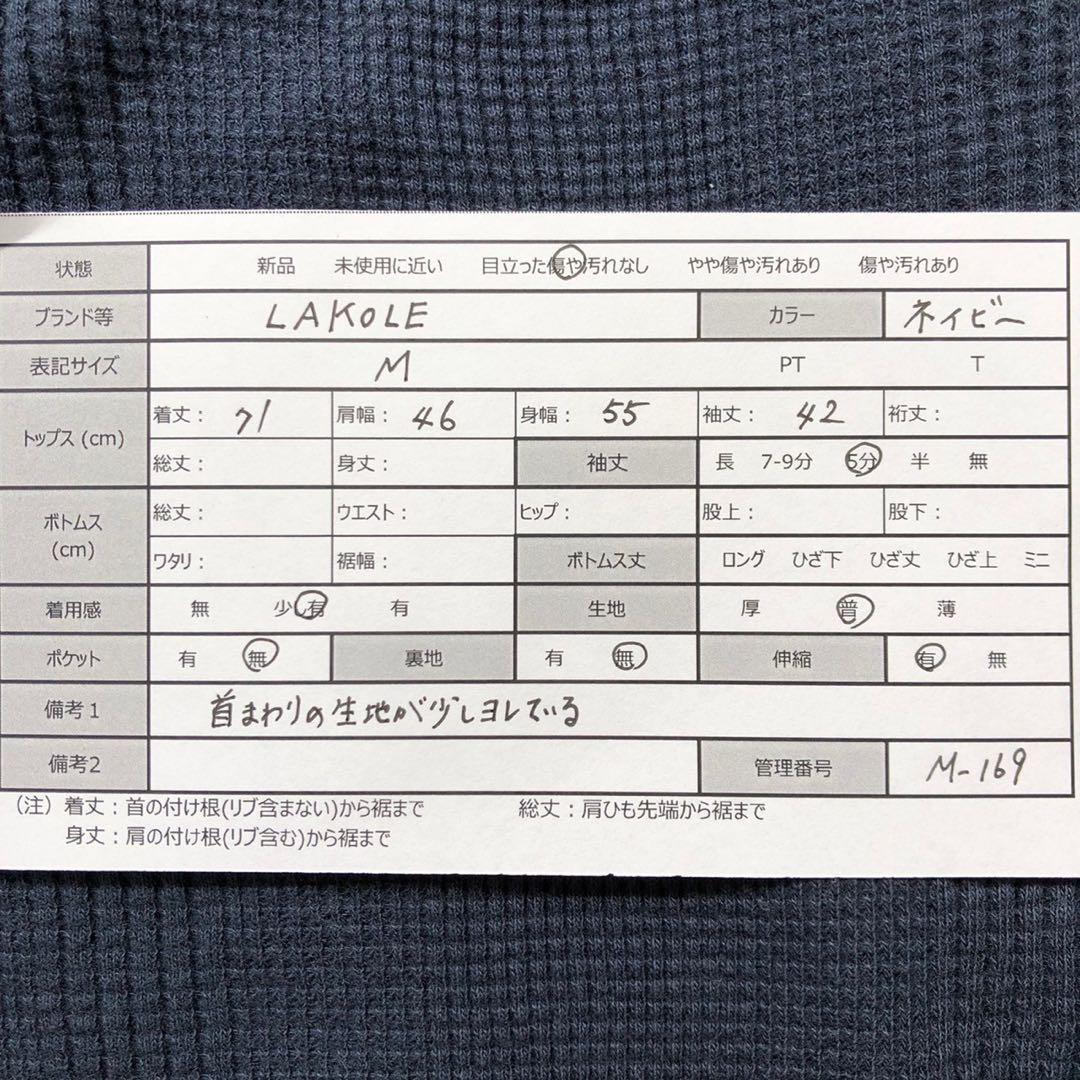 状態 新品 未使用に近い 目立った傷や汚れなし やや傷や汚れあり 傷や汚れあり
ブランド等 LAKOLE カラー ネイビー
表記サイズ M PT T
トップス (cm) 着丈: 71 肩幅: 46 身幅: 55 袖丈: 42 裄丈:
総丈: 身丈: 袖丈 長 7-9分 5分 半 無
ボトムス (cm) 総丈: ウエスト: ヒップ: 股上: 股下:
ワタリ: 裾幅: ボトムス丈 ロング ひざ下 ひざ丈 ひざ上 ミニ
着用感 無 少し有 有 生地 厚 普 薄
ポケット 有 無 裏地 有 無 伸縮 有 無
備考1 首まわりの生地が少しヨレている
備考2 管理番号 M-169
(注) 着丈:首の付け根(リブ含まない)から裾まで 総丈:肩ひも先端から裾まで
身丈:肩の付け根(リブ含む)から裾まで